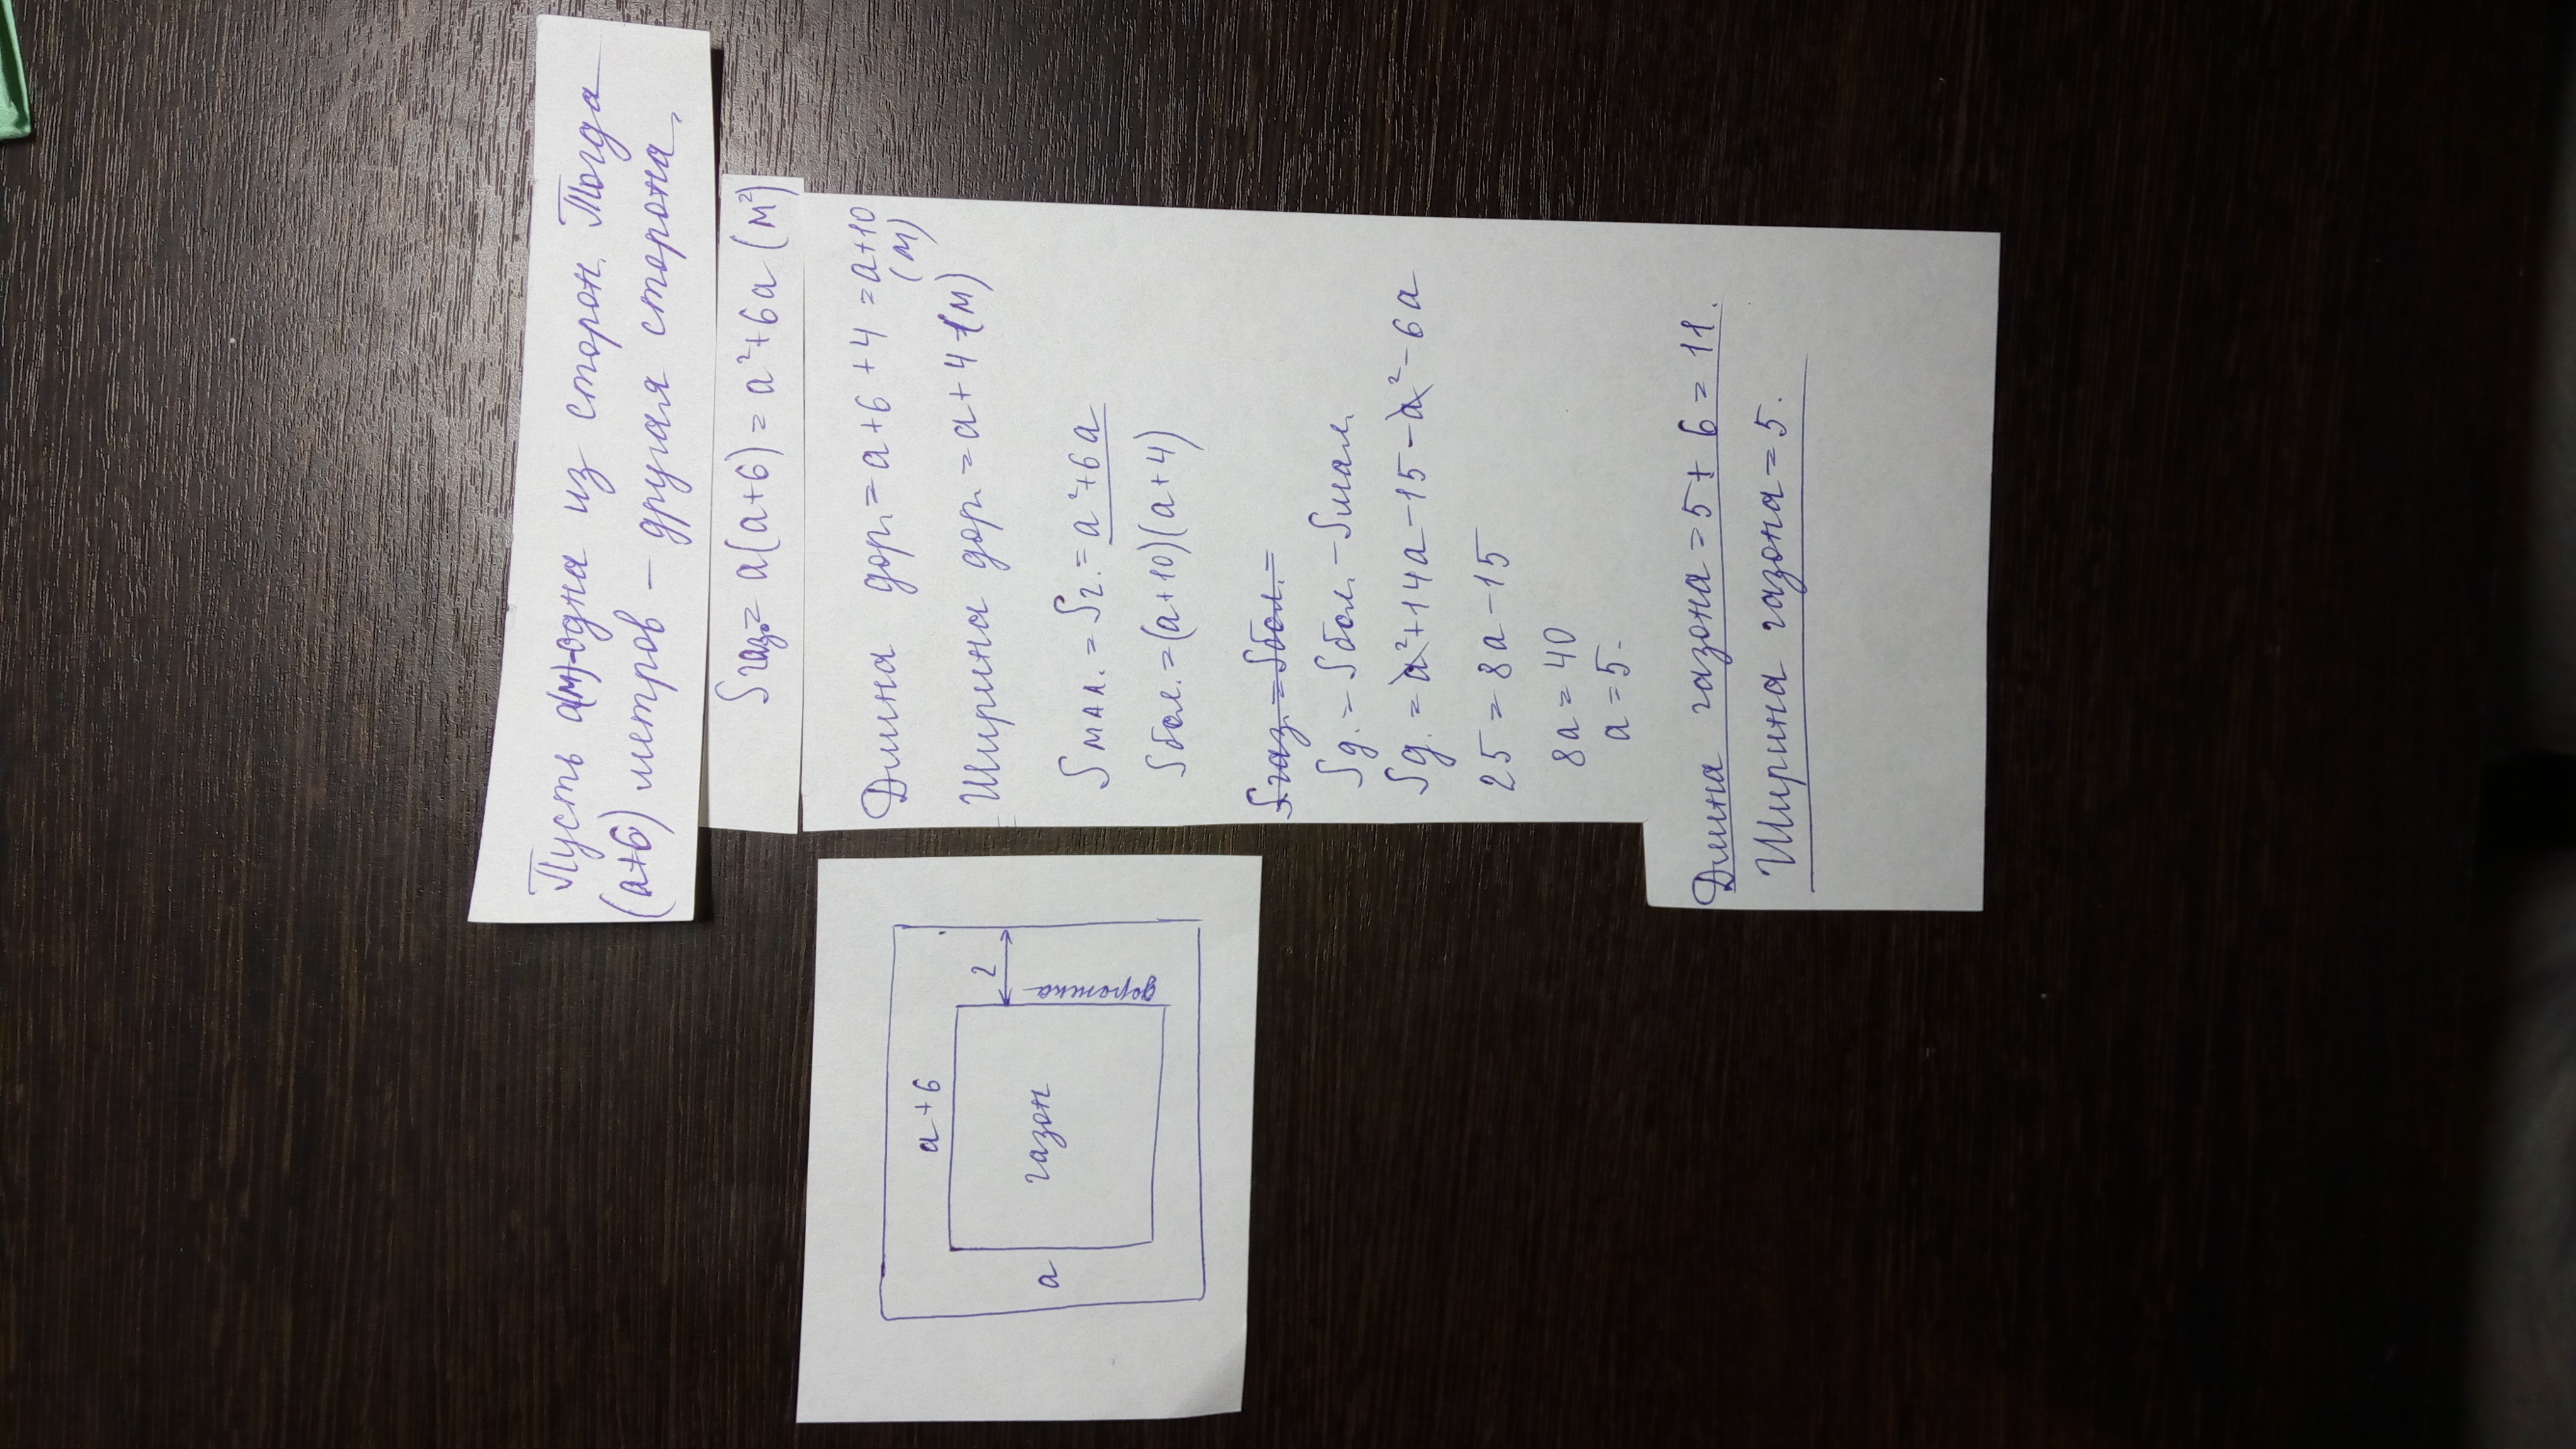 Пусть а(м)-одна из сторон. Тогда
(а+6) метров – другая сторона.
Sгаз.= а(а+6) = а²+6а (м²)
Длина дор. = а+6+4 = а+10
(м)
Ширина дор. = а+4 (м)
Sмал. = S2. = а²+6а
Sбол. = (а+10)(а+4)
Sгаз. = Sбол. =
Sд. = Sбол. – Sмал.
Sд. = а²+14а-15-а²-6а
25 = 8а-15
8а = 40
а = 5.
Длина газона = 5+6 = 11.
Ширина газона = 5.
а+6
2
дорожка
газон
а